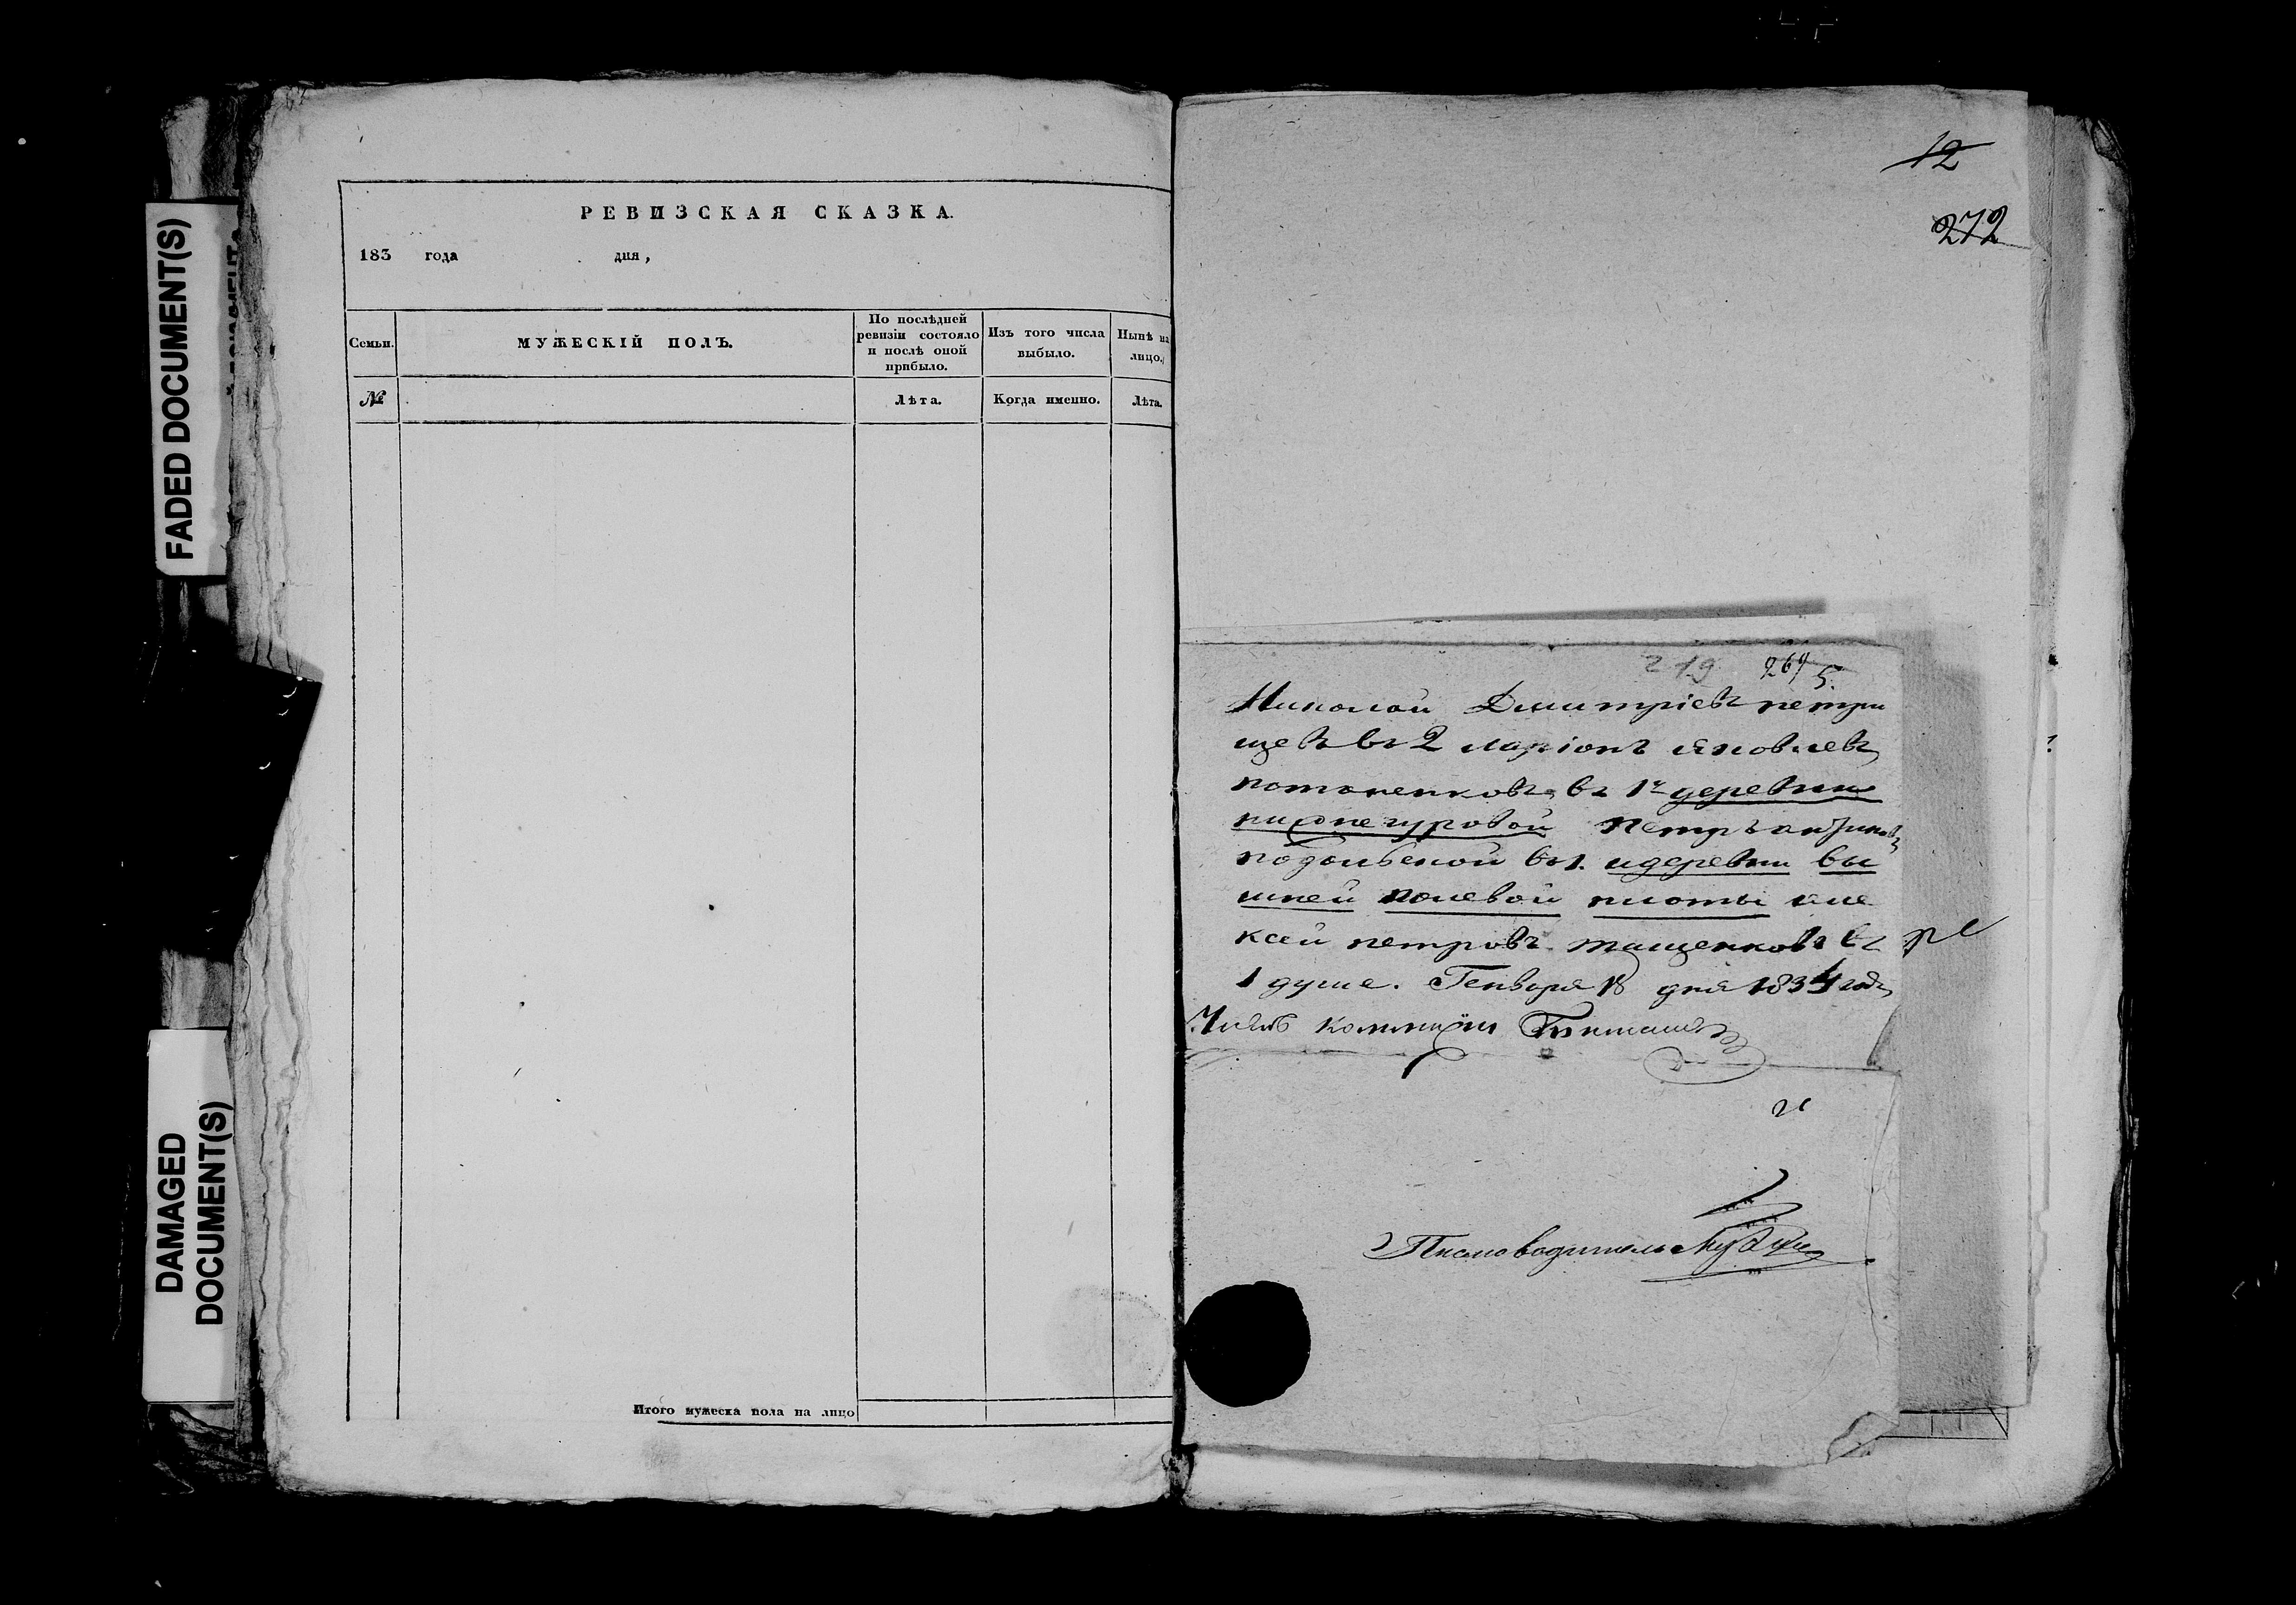 FADED DOCUMENT(S)
DAMAGED
DOCUMENT(S)
РЕВИЗСКАЯ СКАЗКА.
183 года дня,
Семьи.
МУЖЕСКІЙ ПОЛЪ.
По послѣдней
ревизіи состояло
и послѣ оной
прибыло.
Изъ того числа
выбыло.
Нынѣ на
лицо.
№
Лѣта.
Когда именно.
Лѣта.
Итого мужеска пола на лицо
12
272
219 269 5.
Николай Дмитріевъ петри
щевъ въ 2 ларіонъ яковлевъ
потапенковъ въ 1й деревни
нижнегуровой Петръ
подольской въ 1. идеревни вы
шней полевой плоты але
ксей петровъ тащенковъ въ
1 душе. Генваря 18 дня 1834 года
Членъ коммиссіи
Писмоводитель